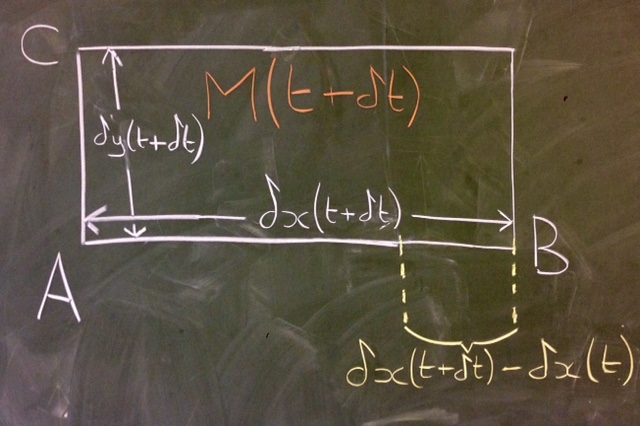 C
M(t+δt)
δy(t+δt)
δx(t+δt)
B
A
δx(t+δt)-δx(t)